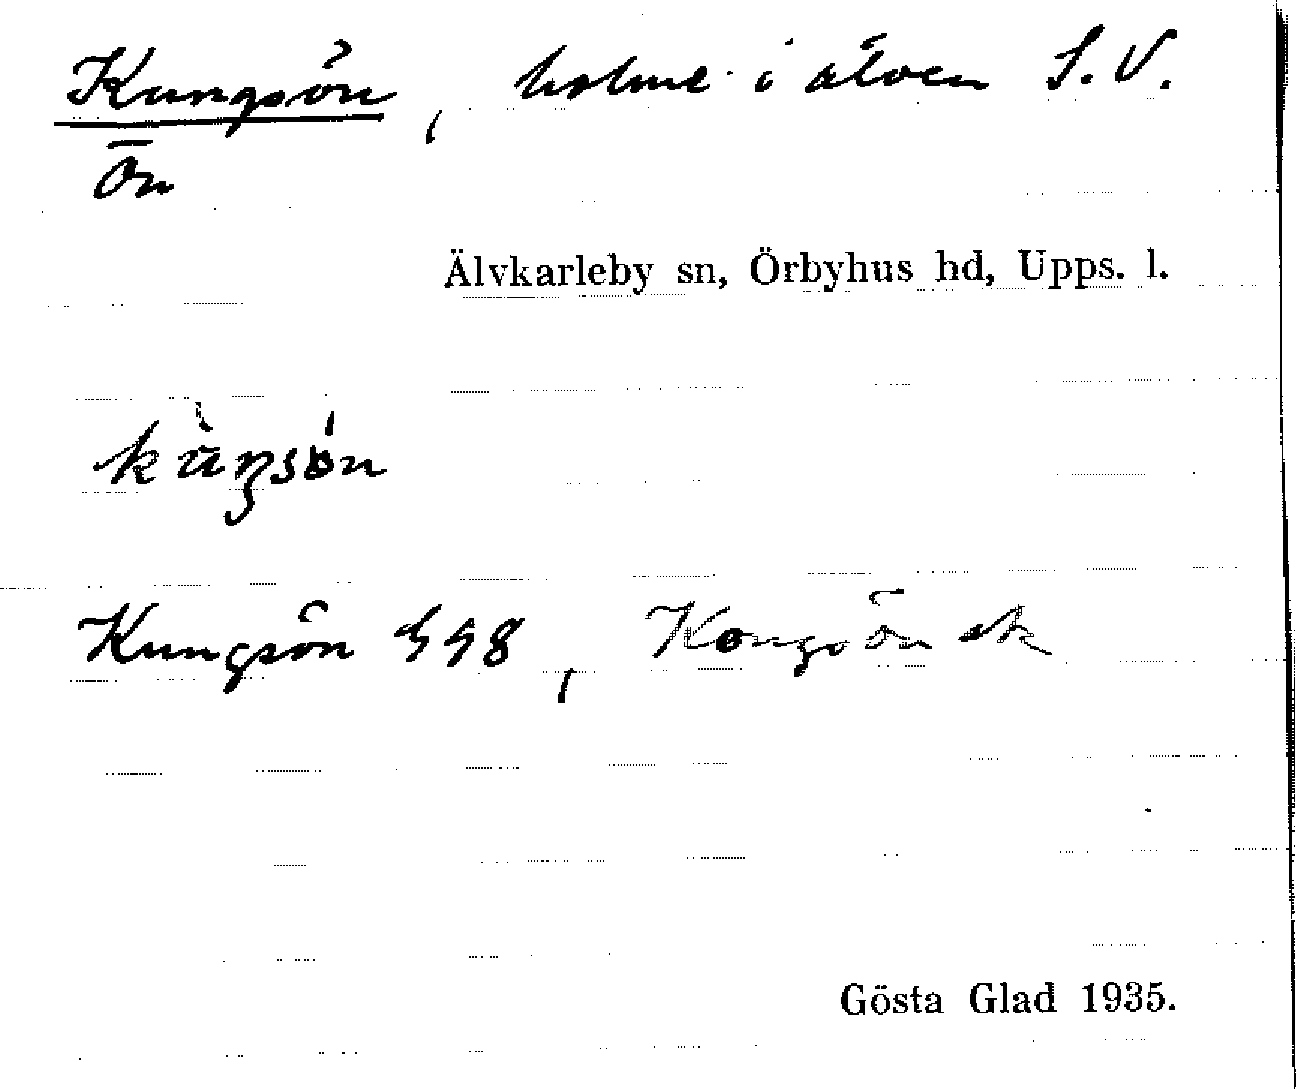 Kungsön, holme i älven S.V.
Ön
Älvkarleby sn, Örbyhus hd, Upps. l.
kùŋsön
Kungsön G98, Kongsön ek
Gösta Glad 1935.